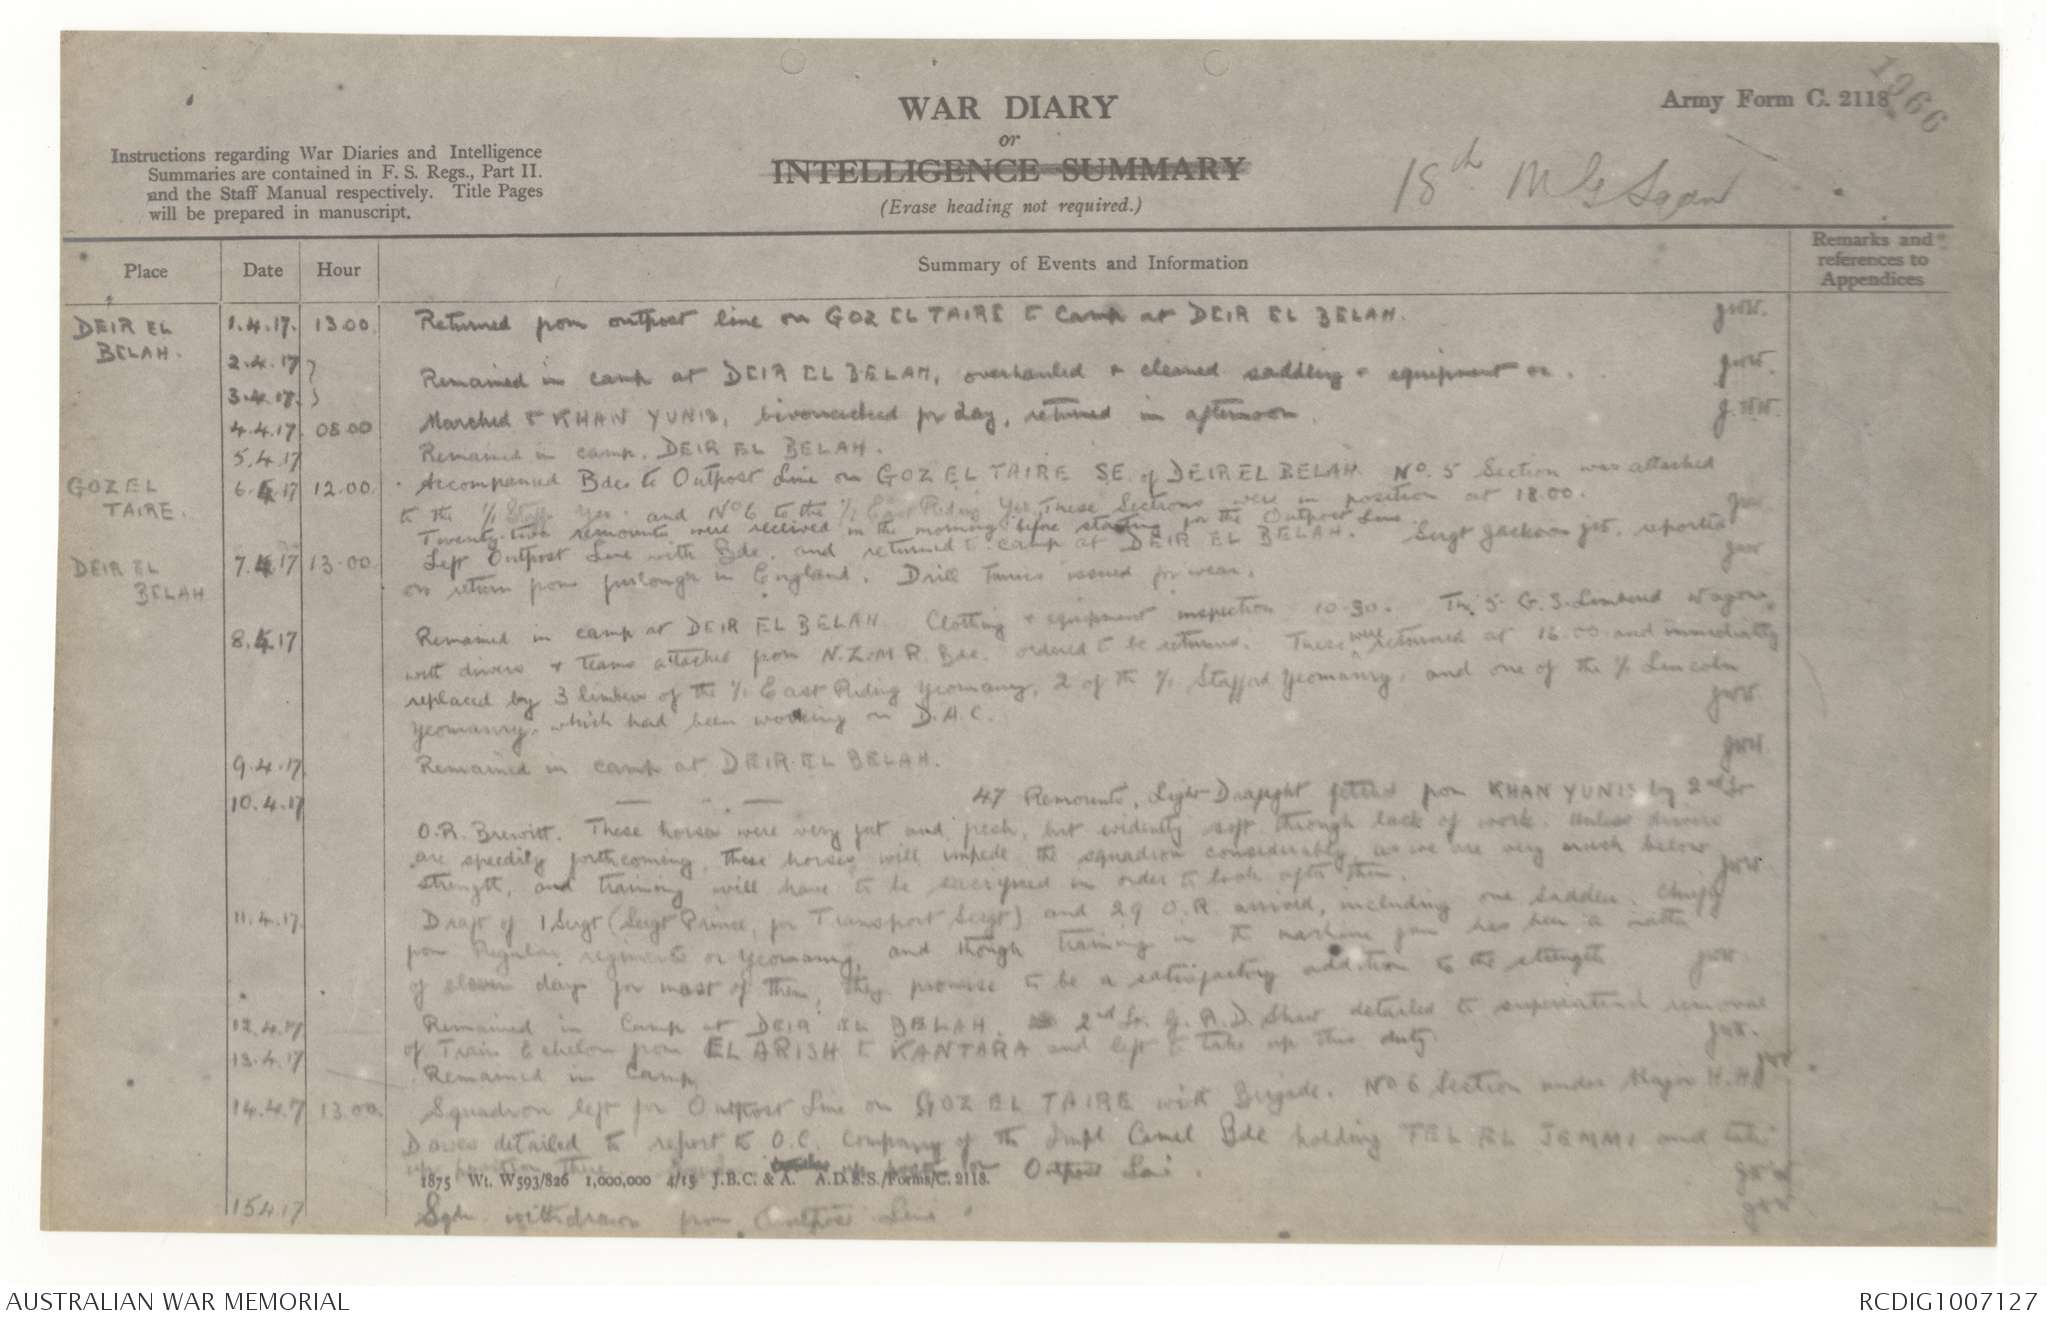 1966
Army Form C. 2118.
WAR DIARY
or
INTELLIGENCE SUMMARY
(Erase heading not required.)
Instructions regarding War Diaries and Intelligence
Summaries are contained in F. S. Regs., Part II.
and the Staff Manual respectively. Title Pages
will be prepared in manuscript.
18th M G Sqdn
Place Date Hour Summary of Events and Information Remarks and references to Appendices
DEIR EL BELAH. 1.4.17. 13 00. Returned from outpost line on GOZ EL TAIRE to Camp at DEIR EL BELAH.
2.4.17 }
3.4.17. } Remained in camp at DEIR EL BELAH, overhauled & cleaned saddling & equipment
4.4.17. 08 00 Marched to KHAN YUNIS, bivouacked for day, returned in afternoon.
5.4.17 Remained in camp, DEIR EL BELAH.
GOZ EL TAIRE. 6.4.17 12.00. Accompanied Bde to Outpost Line on GOZ EL TAIRE SE. of DEIR EL BELAH. No. 5 Section was attached
to the 1/1 Staff. Yeo. and No 6 to the 1/1 East Riding Yeo. These Sections were in position at 18.00.
Twenty-two remounts were received in the morning before starting for the Outpost Line.
DEIR EL BELAH 7.4.17 13.00. Left Outpost Line with Bde. and returned to camp at DEIR EL BELAH. Sergt Jackson reported
on return from furlough in England. Drill Tunics issued for wear.
8.4.17 Remained in camp at DEIR EL BELAH. Clothing & equipment inspection 10-30. The 5 G.S. Limbered Wagons
with drivers & teams attached from N.Z.M.R. Bde. ordered to be returned. These were returned at 16.00 and immediately
replaced by 3 limbers of the 1/1 East Riding Yeomanry, 2 of the 1/1 Stafford Yeomanry, and one of the 1/1 Lincoln
Yeomanry, which had been working on D.A.C.
9.4.17. Remained in camp at DEIR EL BELAH.
10.4.17 — " — 47 Remounts, Light Draught fetched from KHAN YUNIS by 2nd Lt
O.R. Brewitt. These horses were very fat and fresh, but evidently soft through lack of work. Unless drivers
are speedily forthcoming, these horses will impede the squadron considerably, as we are very much below
strength, and training will have to be sacrificed in order to look after them.
11.4.17. Draft of 1 Sergt (Sergt Prince, for Transport Sergt) and 29 O.R. arrived, including one Saddler. Chiefly
from Regular regiments or Yeomanry, and though training in the machine gun has been a matter
of eleven days for most of them, they promise to be a satisfactory addition to the strength
12.4.17 Remained in Camp at DEIR EL BELAH. 2nd Lt. G. R. D. Shaw detailed to superintend removal
of Train Echelon from EL ARISH to KANTARA and left to take up this duty.
13.4.17 Remained in Camp
14.4.17 13.00. Squadron left for Outpost Line on GOZ EL TAIRE with Brigade. No 6 Section under Major H.H.
Davis detailed to report to O.C. Company of the Impl Camel Bde holding TEL EL JEMMI and take
up position there. Outpost Line.
1875 Wt. W593/826 1,000,000 4/15 J.B.C. & A. A.D.S.S./Forms/C. 2118.
15 4 17 Sqdn withdrawn from Outpost Line.
AUSTRALIAN WAR MEMORIAL RCDIG1007127